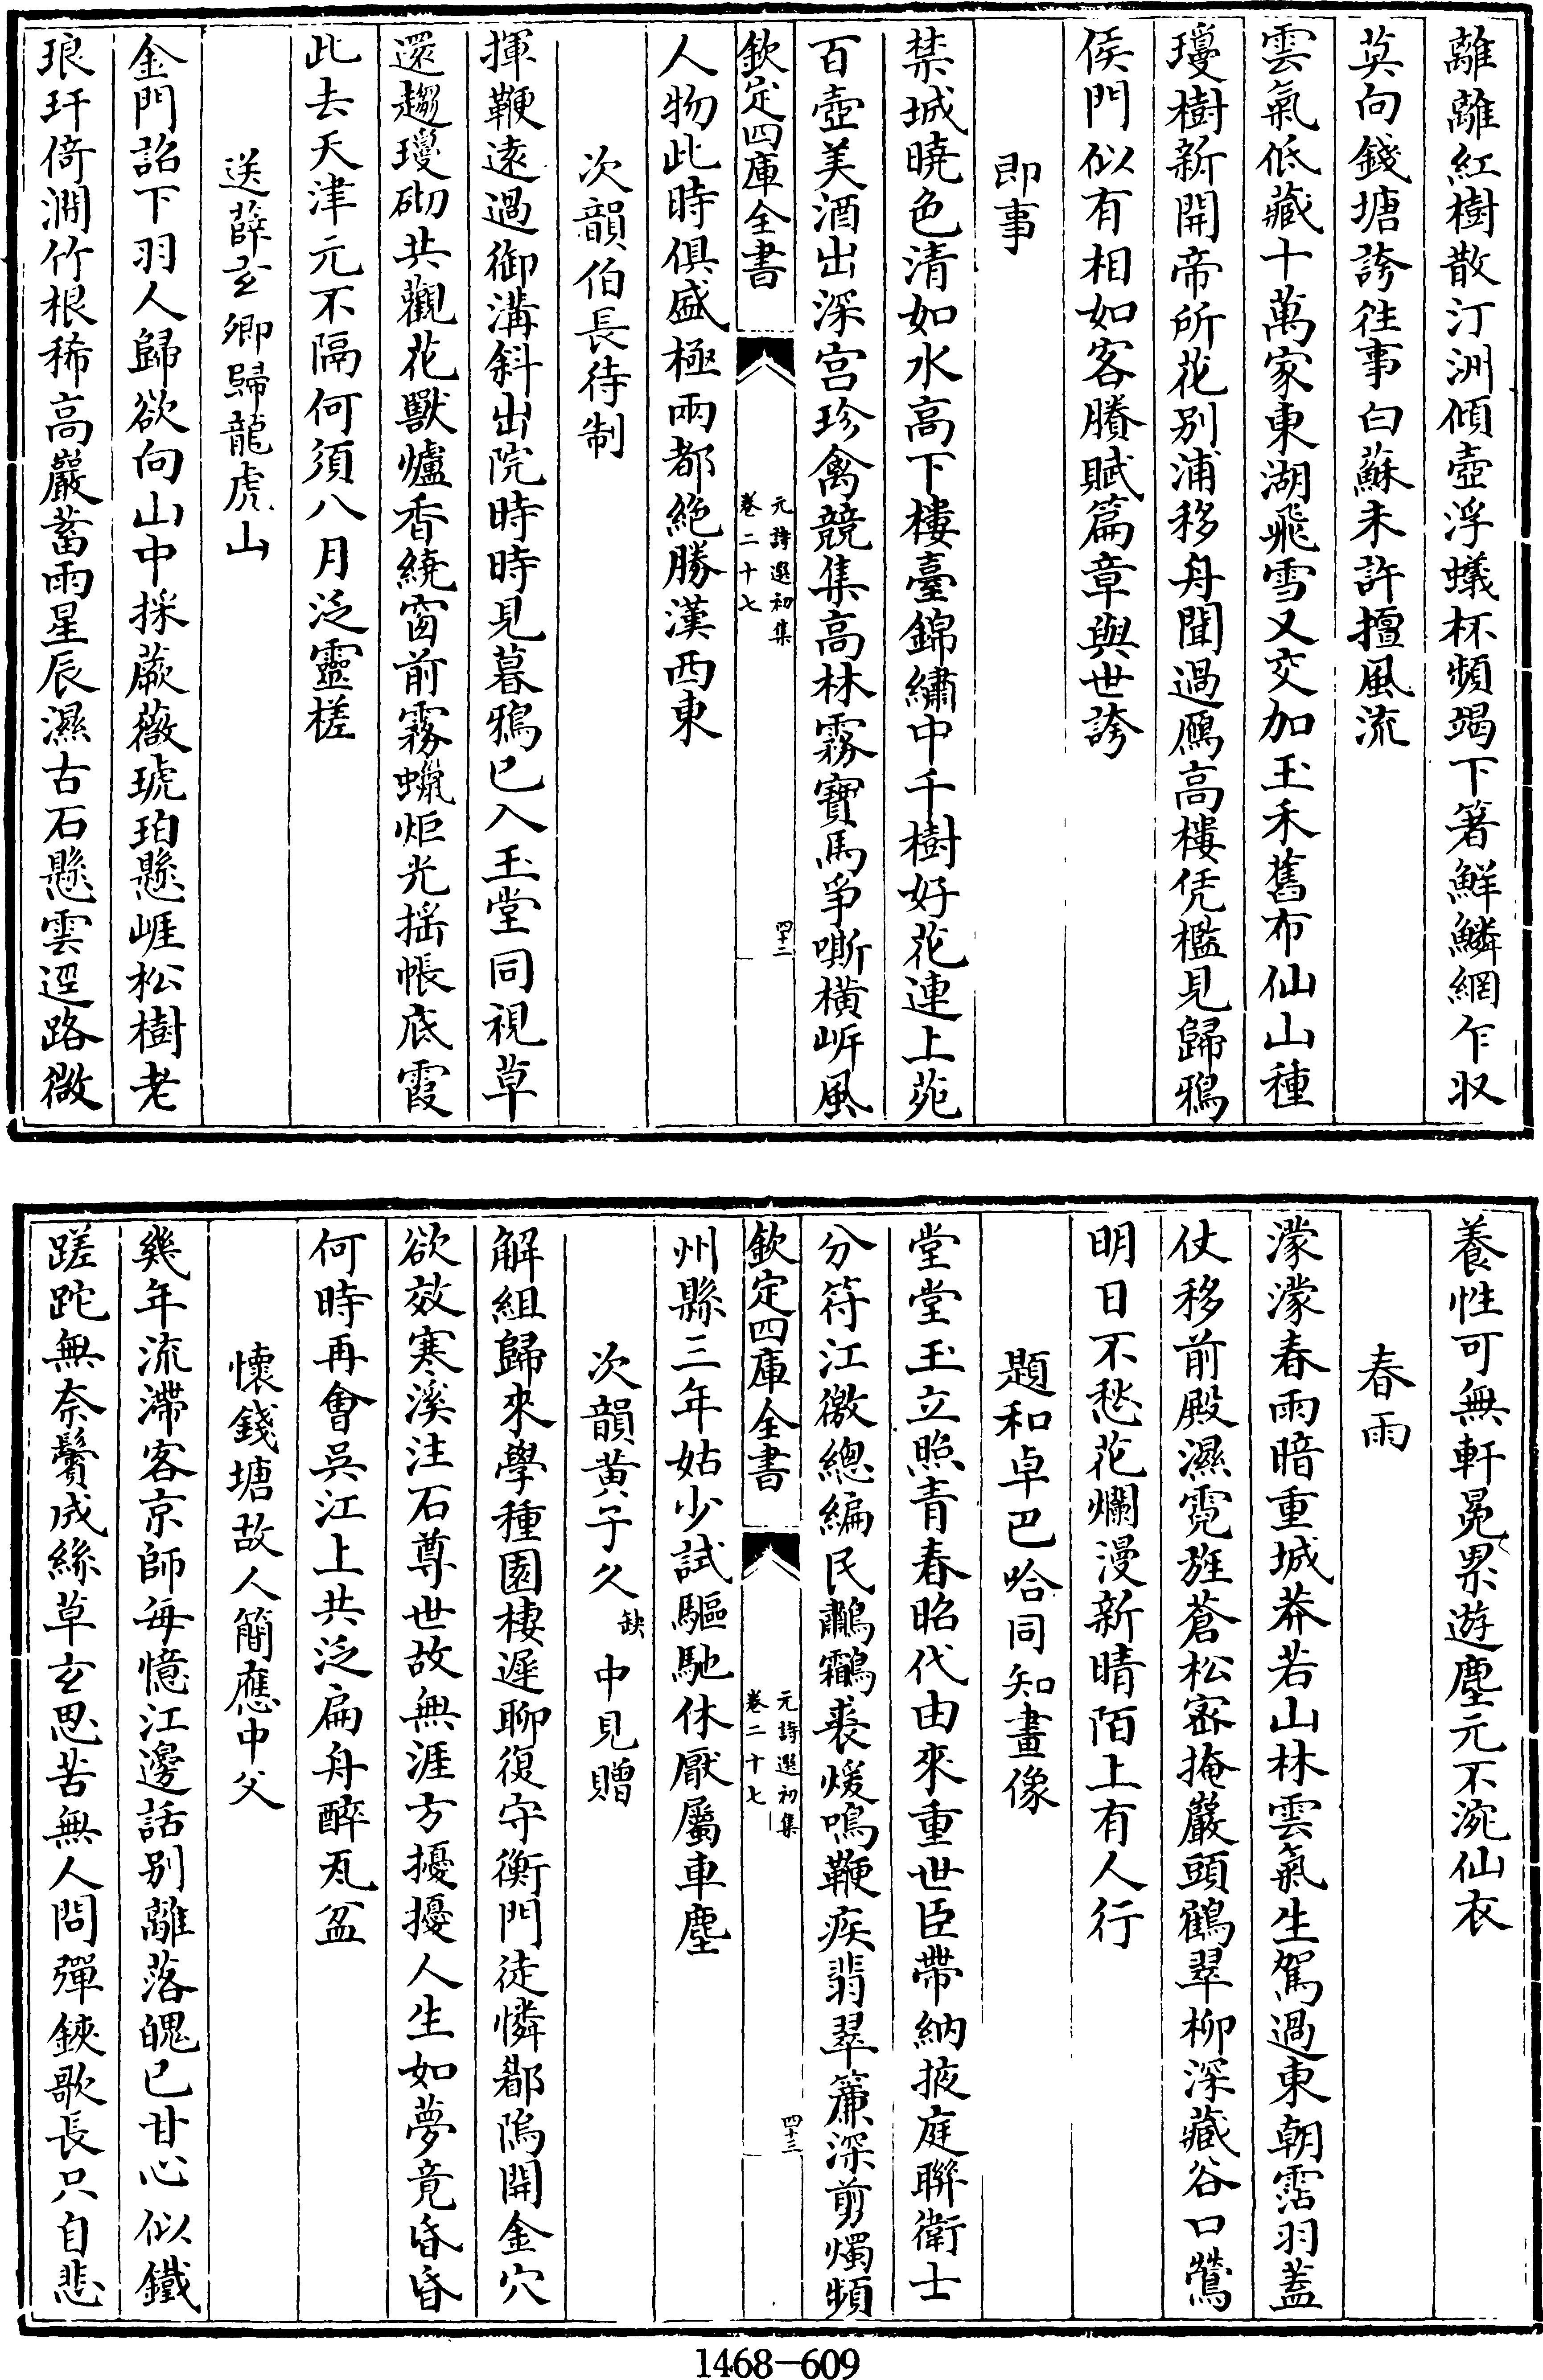 離離紅樹散汀洲傾壺浮蟻杯頻竭下箸鮮鱗網乍収
莫向錢塘誇往事白蘇未許擅風流
雲氣低藏十萬家東湖飛雪又交加玉禾舊布仙山種
瓊樹新開帝所花别浦移舟聞過鴈高樓凭檻見歸鴉
侯門似有相如客賸賦篇章與世誇
即事
禁城曉色清如水高下樓臺錦繡中千樹好花連上苑
百壺美酒出深宫珍禽競集高林霧寳馬爭嘶横㟁風
欽定四庫全書
元詩選初集
卷二十七
四十二
人物此時俱盛極兩都絶勝漢西東
次韻伯長待制
揮鞭遠過御溝斜出院時時見暮鴉已入玉堂同視草
還趨瓊砌共觀花獸爐香繞窗前霧蠟炬光揺帳底霞
此去天津元不隔何須八月泛靈槎
送薛玄卿歸龍虎山
金門詔下羽人歸欲向山中採蕨薇琥珀懸崕松樹老
琅玕倚澗竹根稀高巖蓄雨星辰濕古石懸雲逕路微
養性可無軒冕累遊塵元不涴仙衣
春雨
濛濛春雨暗重城莽若山林雲氣生駕過東朝霑羽蓋
仗移前殿濕霓旌蒼松密掩巖頭鶴翠柳深藏谷口鶯
明日不愁花爛漫新晴陌上有人行
題和卓巴哈同知畫像
堂堂玉立照青春昭代由來重世臣帶納掖庭聯衛士
分符江徼總編民鸕鷫裘煖鳴鞭疾翡翠簾深剪燭頻
欽定四庫全書
元詩選初集
卷二十七
四十三
州縣三年姑少試驅馳休厭屬車塵
次韻黄子久缺中見贈
解組歸來學種園棲遲聊復守衡門徒憐郿隖開金穴
欲效寒溪注石尊世故無涯方擾擾人生如夢竟昏昏
何時再會吳江上共泛扁舟醉瓦盆
懷錢塘故人簡應中父
幾年流滯客京師每憶江邊話别離落魄已甘心似鐵
蹉跎無奈鬢成絲草玄思苦無人問彈鋏歌長只自悲
1468-609